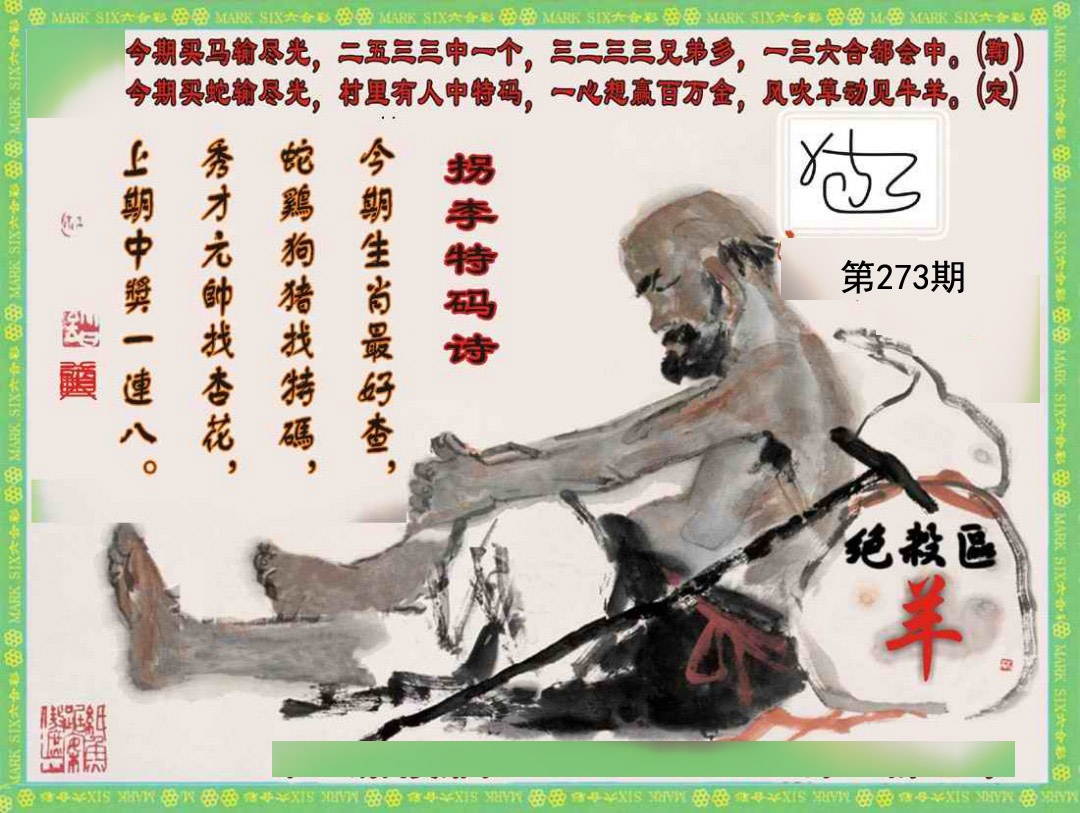 MARK SIX六合彩 MARK SIX六合彩 MARK SIX六合彩 MARK SIX六合彩 MARK SIX六合彩 MARK SIX六合彩 MARK SIX六合彩 MARK SIX六合彩
今期买马输尽光，二五三三中一个，三二三三兄弟多，一三六合都会中。(鞠)
今期买蛇输尽光，村里有人中特码，一心想赢百万金，风吹草动见牛羊。(定)
第273期
拐李特码诗
今期生肖最好查，
蛇鷄狗猪找特碼，
秀才元帥找杏花，
上期中獎一連八。
绝殺區
羊